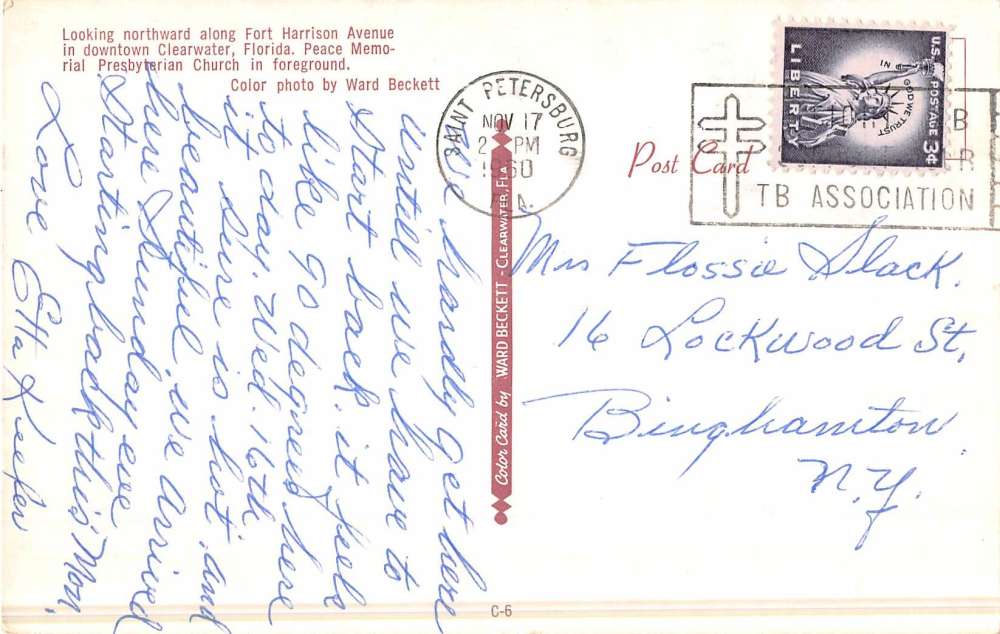 Looking northward along Fort Harrison Avenue
in downtown Clearwater, Florida. Peace Memo-
rial Presbyterian Church in foreground.
Color photo by Ward Beckett
We hardly get here
untill we have to
start back. it feels
like 90 degrees here
to day. Wed. 16th.
it sure is hot. and
beautiful. we arrived
here Sunday eve
Starting back this Mon.
Love Etta
SAINT PETERSBURG
NOV 17
2 PM
1960
Post Card
U.S. POSTAGE 3¢
LIBERTY
IN GOD WE TRUST
TB ASSOCIATION
Mrs Flossie Slack.
16 Lockwood St,
Binghamton
N.Y.
Color Card by WARD BECKETT - CLEARWATER, FLA.
C-6